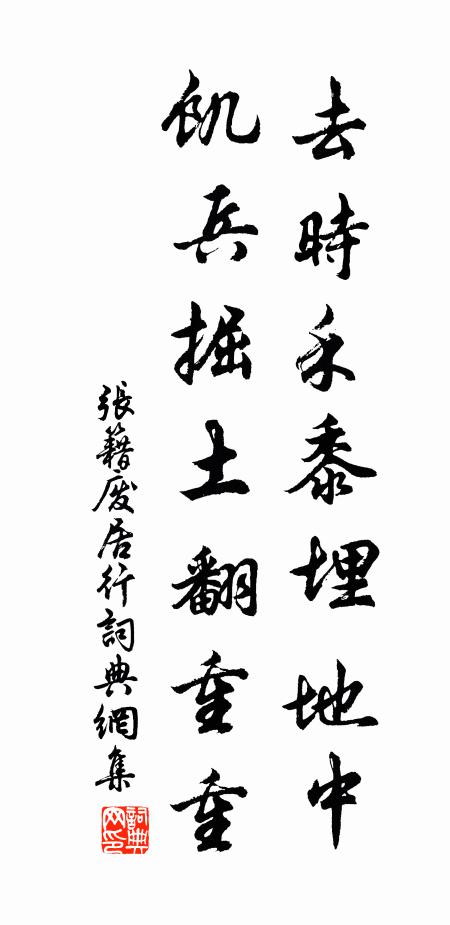 去時禾黍埋地中
飢兵掘土翻重重
張籍廢居行詞典網集
詞典網印